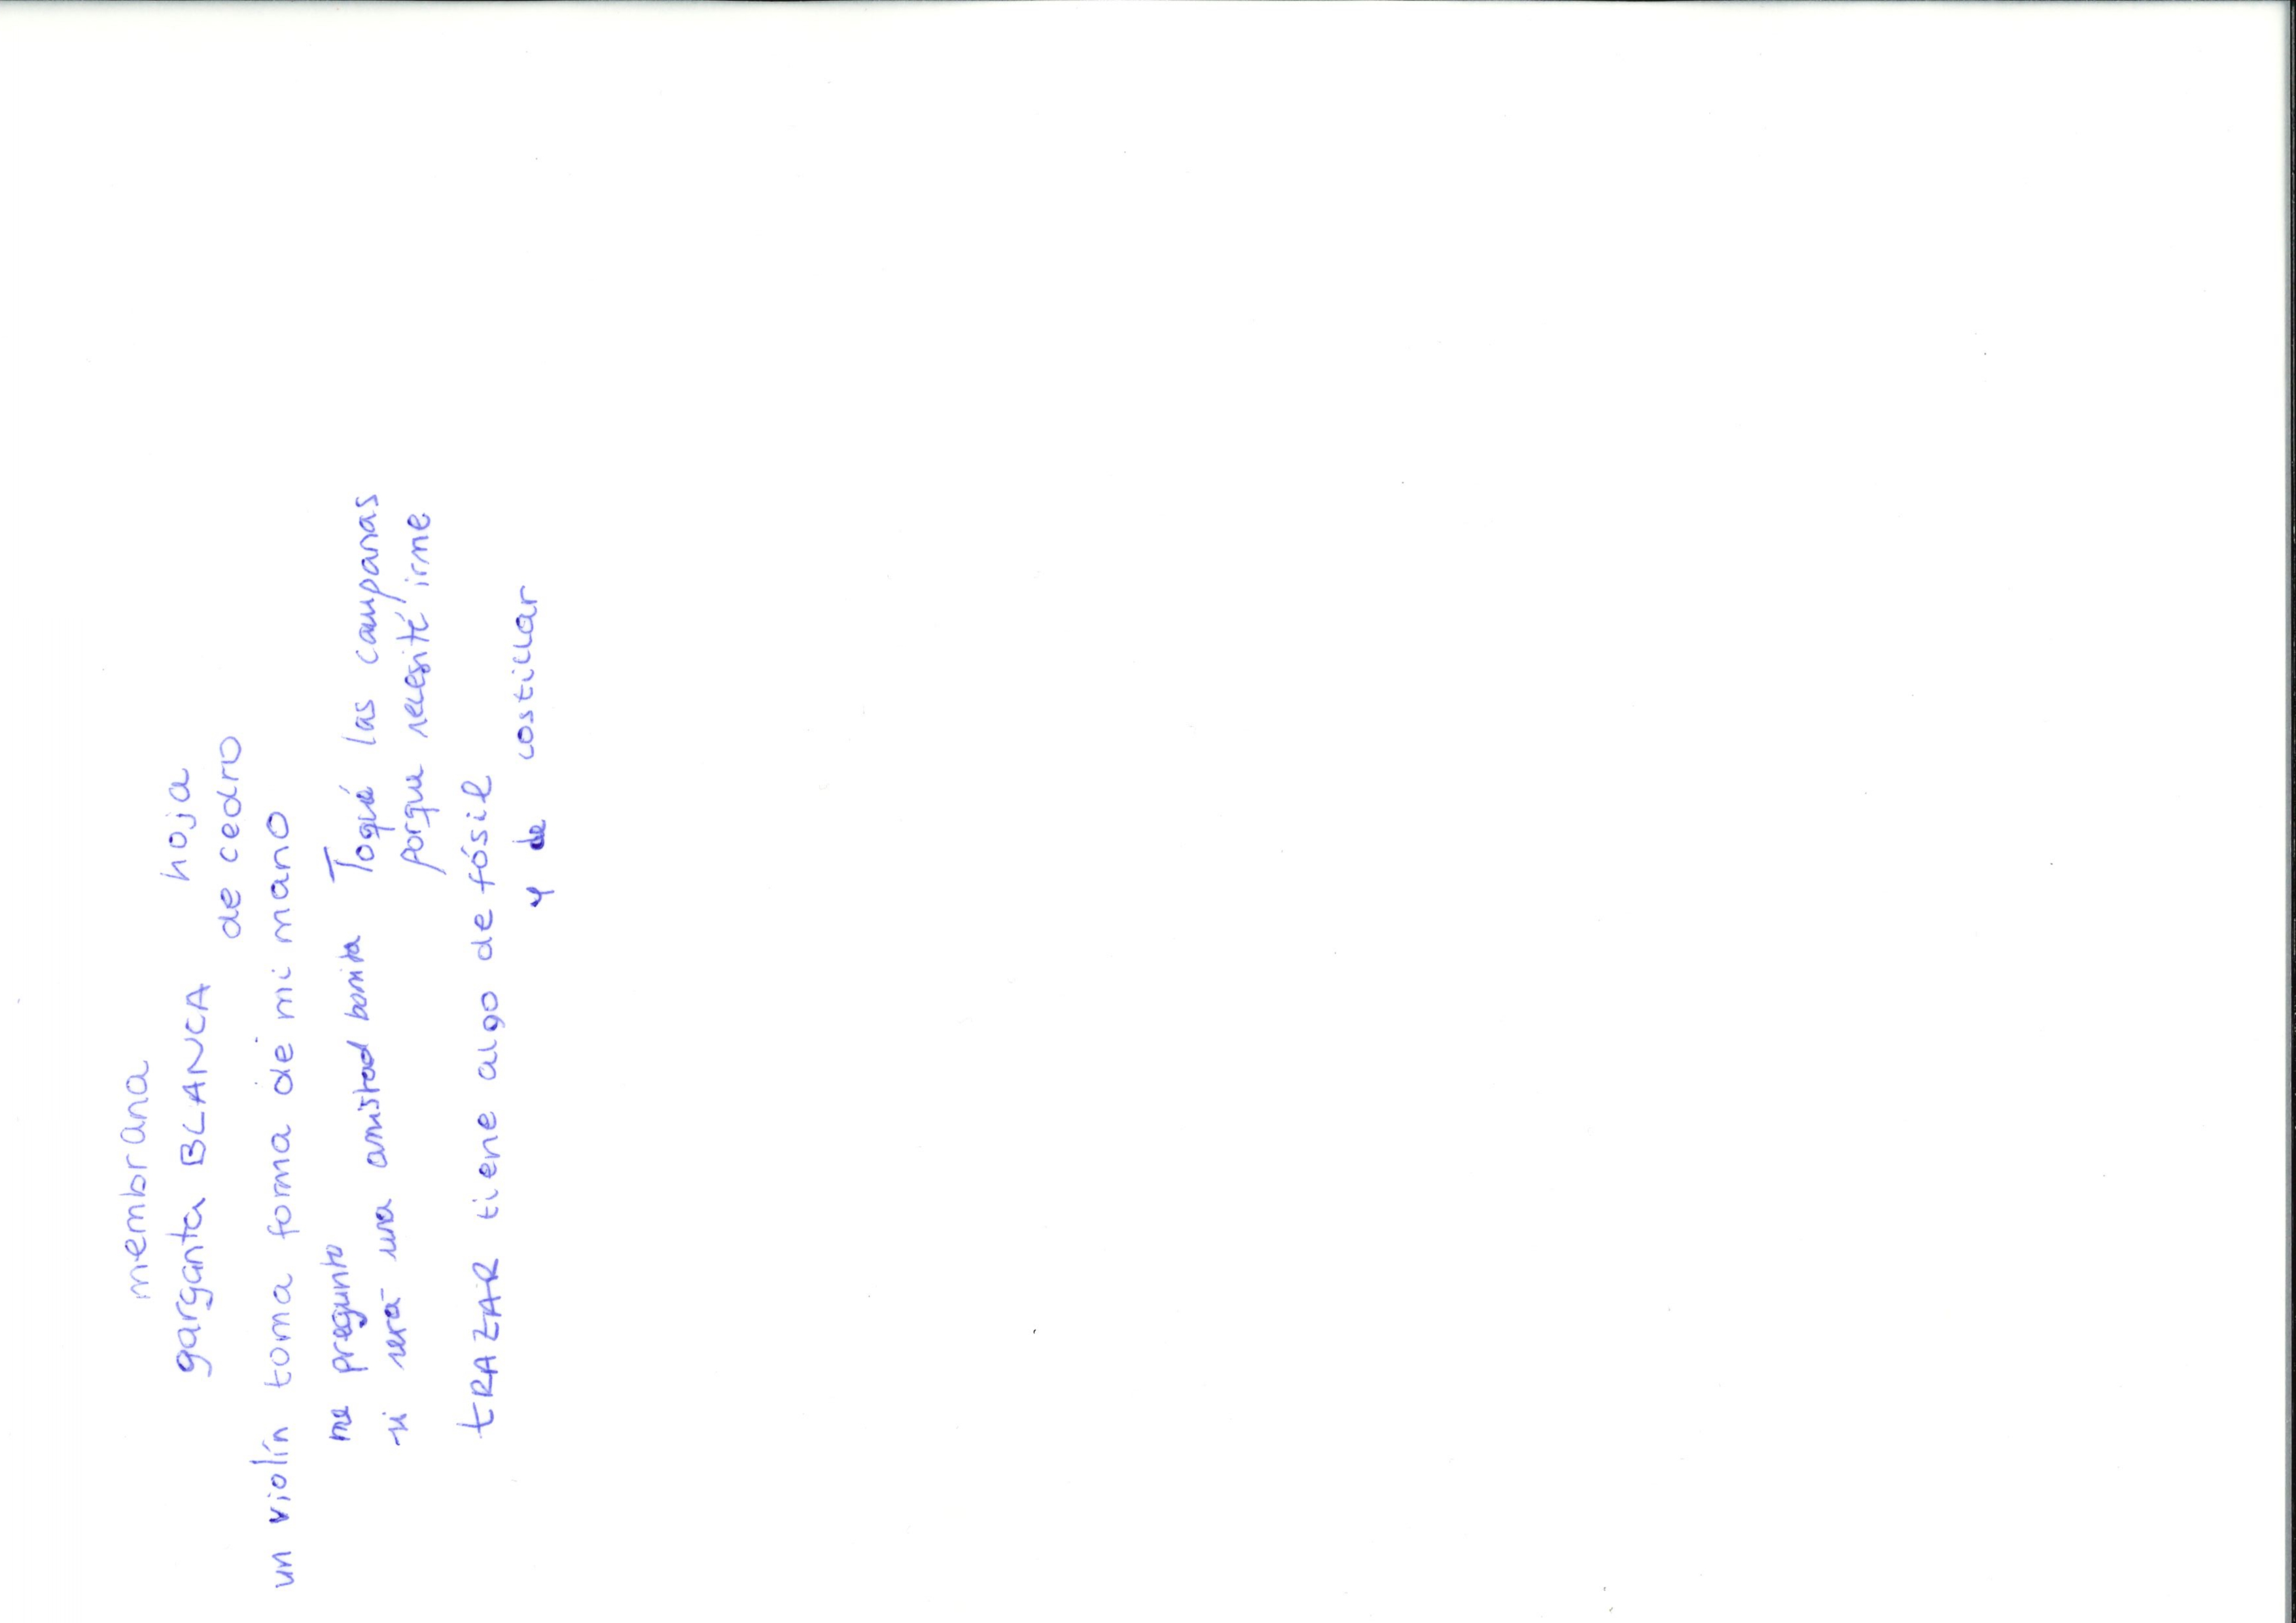 membrana
garganta BLANCA
hoja
de cedro
un violín toma forma de mi mano
me pregunto
si será una amistad bonita
Toqué las campanas
porque necesité irme
tRAZAR tiene algo de fósil
y de costillar